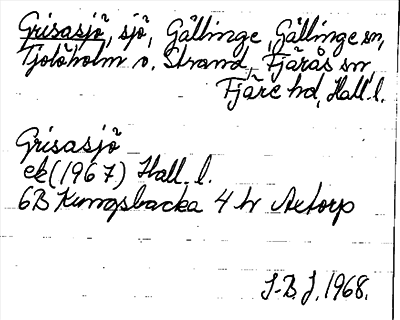 Grisasjö, sjö, Gällinge, Gällinge sn,
Tjolöholm o. Strand, Fjärås sn,
Fjäre hd, Hall. l.
Grisasjö
ek (1967) Hall. l.
6B Kungsbacka 4 h Aetorp
S.B.J. 1968.